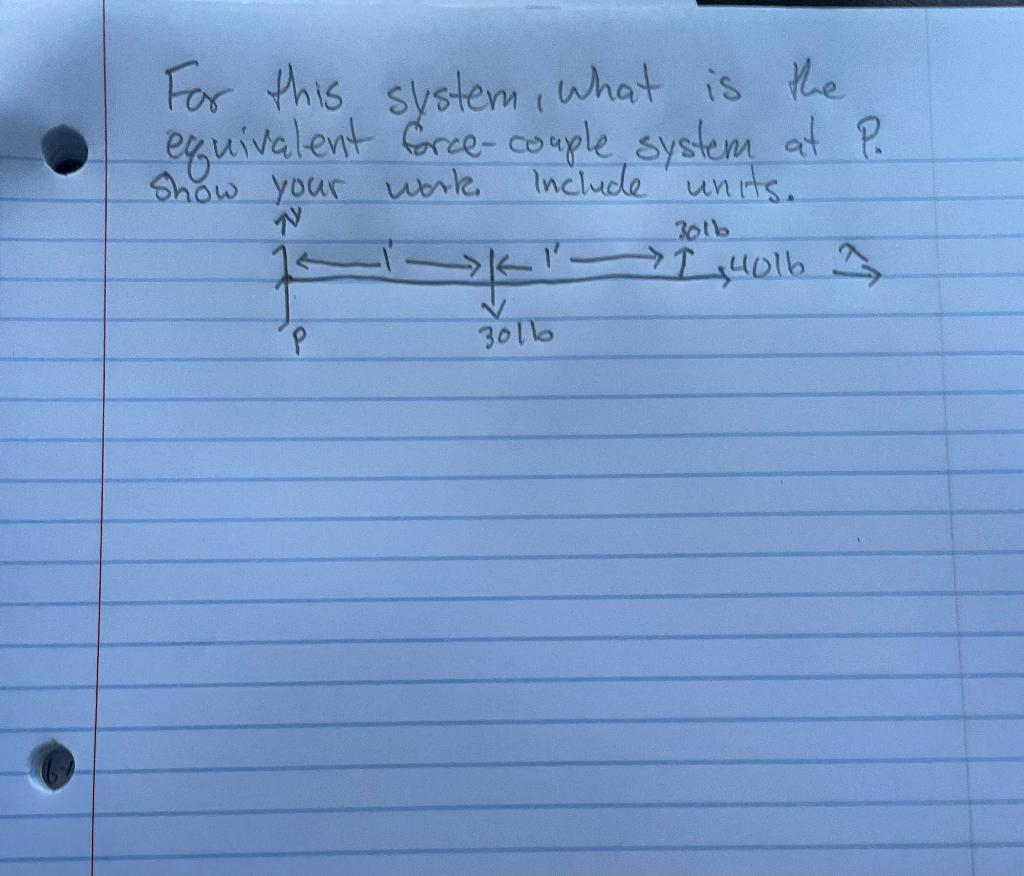 For this system, what is the
equivalent force-couple system at P.
Show your work. Include units.
y
30lb
1' 1' 40lb x
P 30lb